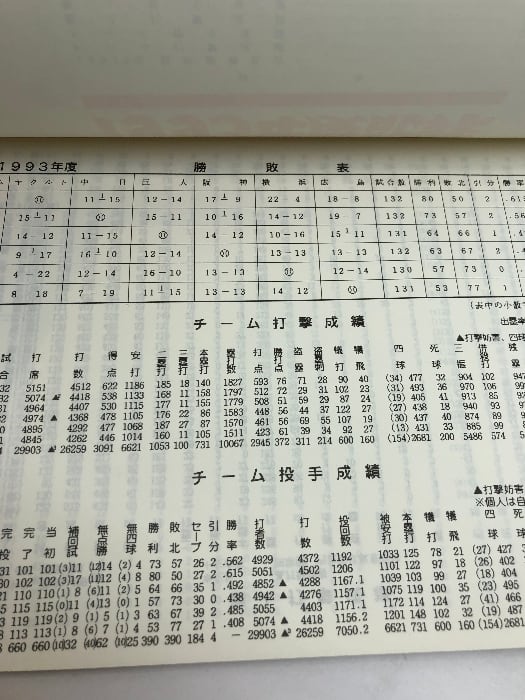 1993年度 勝敗表
ヤクルト 中日 巨人 阪神 横浜 広島 試合数 勝利 敗北 引分 勝率
11 1 15 12-14 17 1 9 22-4 18-8 132 80 50 2
15 1 11 15-11 10 1 16 14-12 19-7 132 73 57 2
14-12 11-15 14-12 10-16 15 1 11 131 64 66 1
9 1 17 16 1 10 12-14 13-13 13-13 132 63 67 2
4-22 12-14 16-10 13-13 12-14 130 57 73 0
8 18 7-19 11 1 15 13-13 14 12 131 53 77 1
(表中の小数
チーム打撃成績
出塁率
▲打撃妨害、四球
試合 打席 打数 得点 安打 二塁打 三塁打 本塁打 塁打数 打点 勝利打点 盗塁 盗塁刺 犠打 犠飛 四球 死球 三振 併殺打 残塁
32 5151 4512 622 1186 185 18 140 1827 593 76 71 28 90 40 (34) 477 32 904 102
32 5074 4418 538 1133 168 11 158 1797 512 72 29 31 102 23 (31) 493 36 970 106
31 4964 4407 530 1115 177 11 155 1779 508 51 59 29 87 24 (19) 405 41 913 85
32 4974 4368 478 1105 176 22 86 1583 448 56 44 37 122 27 (27) 438 18 940 93
30 4895 4292 477 1068 187 27 87 1570 461 56 69 55 107 19 (30) 437 40 874 89
31 4845 4262 446 1014 160 11 105 1511 423 61 39 34 92 27 (13) 431 33 885 99
4 29903 26259 3091 6621 1053 100 731 10067 2945 372 311 214 600 160 (154) 2681 200 5486 574
チーム投手成績
▲打撃妨害
※個人は自
完投 完了 当初 補回試 無点勝 無四球 勝利 敗北 セーブ 引分 勝率 打者数 打数 投回数 被安打 本塁打 犠打 犠飛 四球 死球
31 101 101 (3)11 (2) 4 73 57 26 2 .562 4929 4372 1192 1033 125 78 21 (27) 427
30 102 102 (3)17 (2) 4 80 50 27 2 .615 5051 4502 1206 1101 122 97 18 (26) 402
21 110 110 (1) 8 (6)11 (2) 5 64 66 35 1 .492 4852 ▲ 4288 1167.1 1039 103 99 27 (18) 404
15 115 115 (0)11 (4)13 (0) 1 57 73 30 0 .438 4942 ▲ 4276 1157.1 1075 119 100 35 (23) 495
19 (2) 9 (1) 5 (1) 3 63 67 39 2 .485 5055 4403 1171.1 1172 114 124 27 (41) 466
113 113 (1) 8 (6) 7 (1) 4 53 77 27 1 .408 5074 ▲ 4418 1156.2 1201 148 102 32 (19) 487
8 660 660 (10)32 (40)62 (10)25 390 390 184 4 - 29903 26259 7050.2 6621 731 600 160 (154) 2681